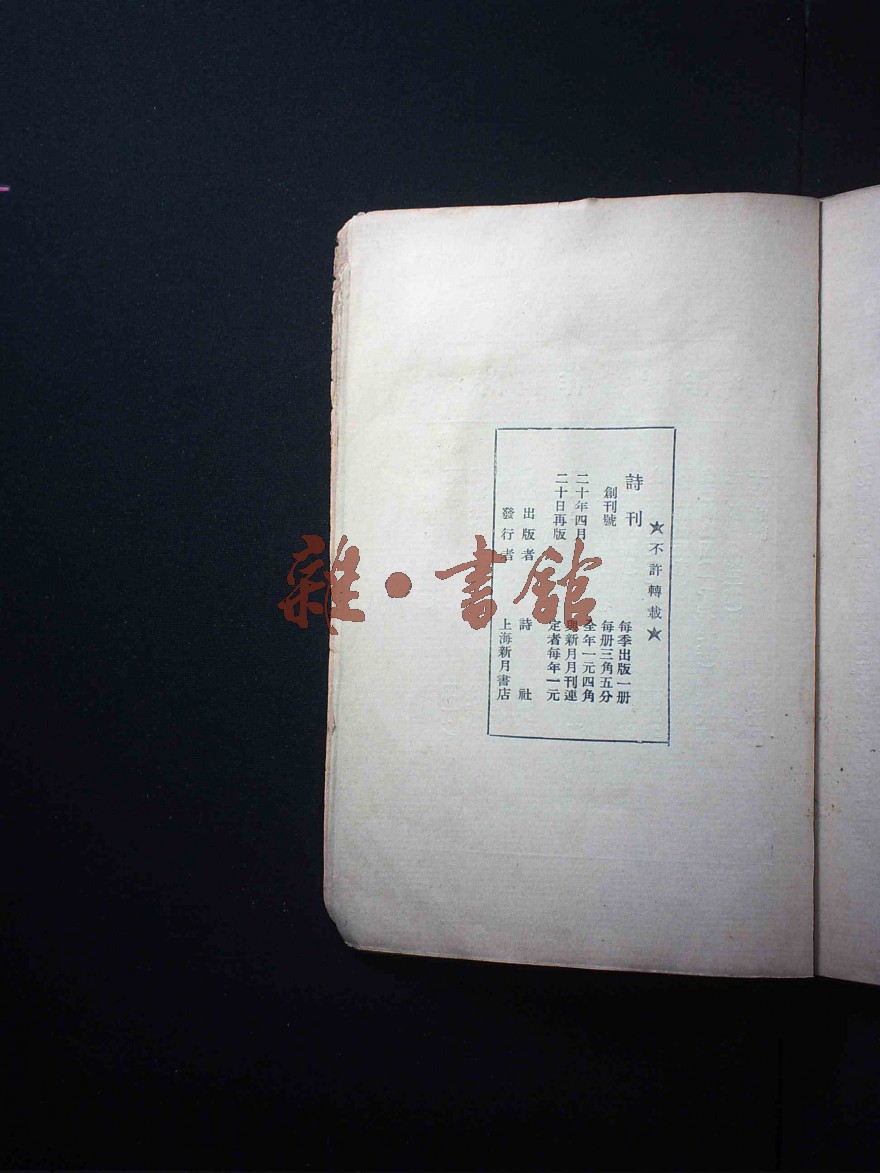 ★不許轉載★
詩刊
創刊號
二十年四月
二十日再版
出版者
發行者
每季出版一册
每册三角五分
全年一元四角
與新月月刊連
定者每年一元
詩社
上海新月書店
雜·書館